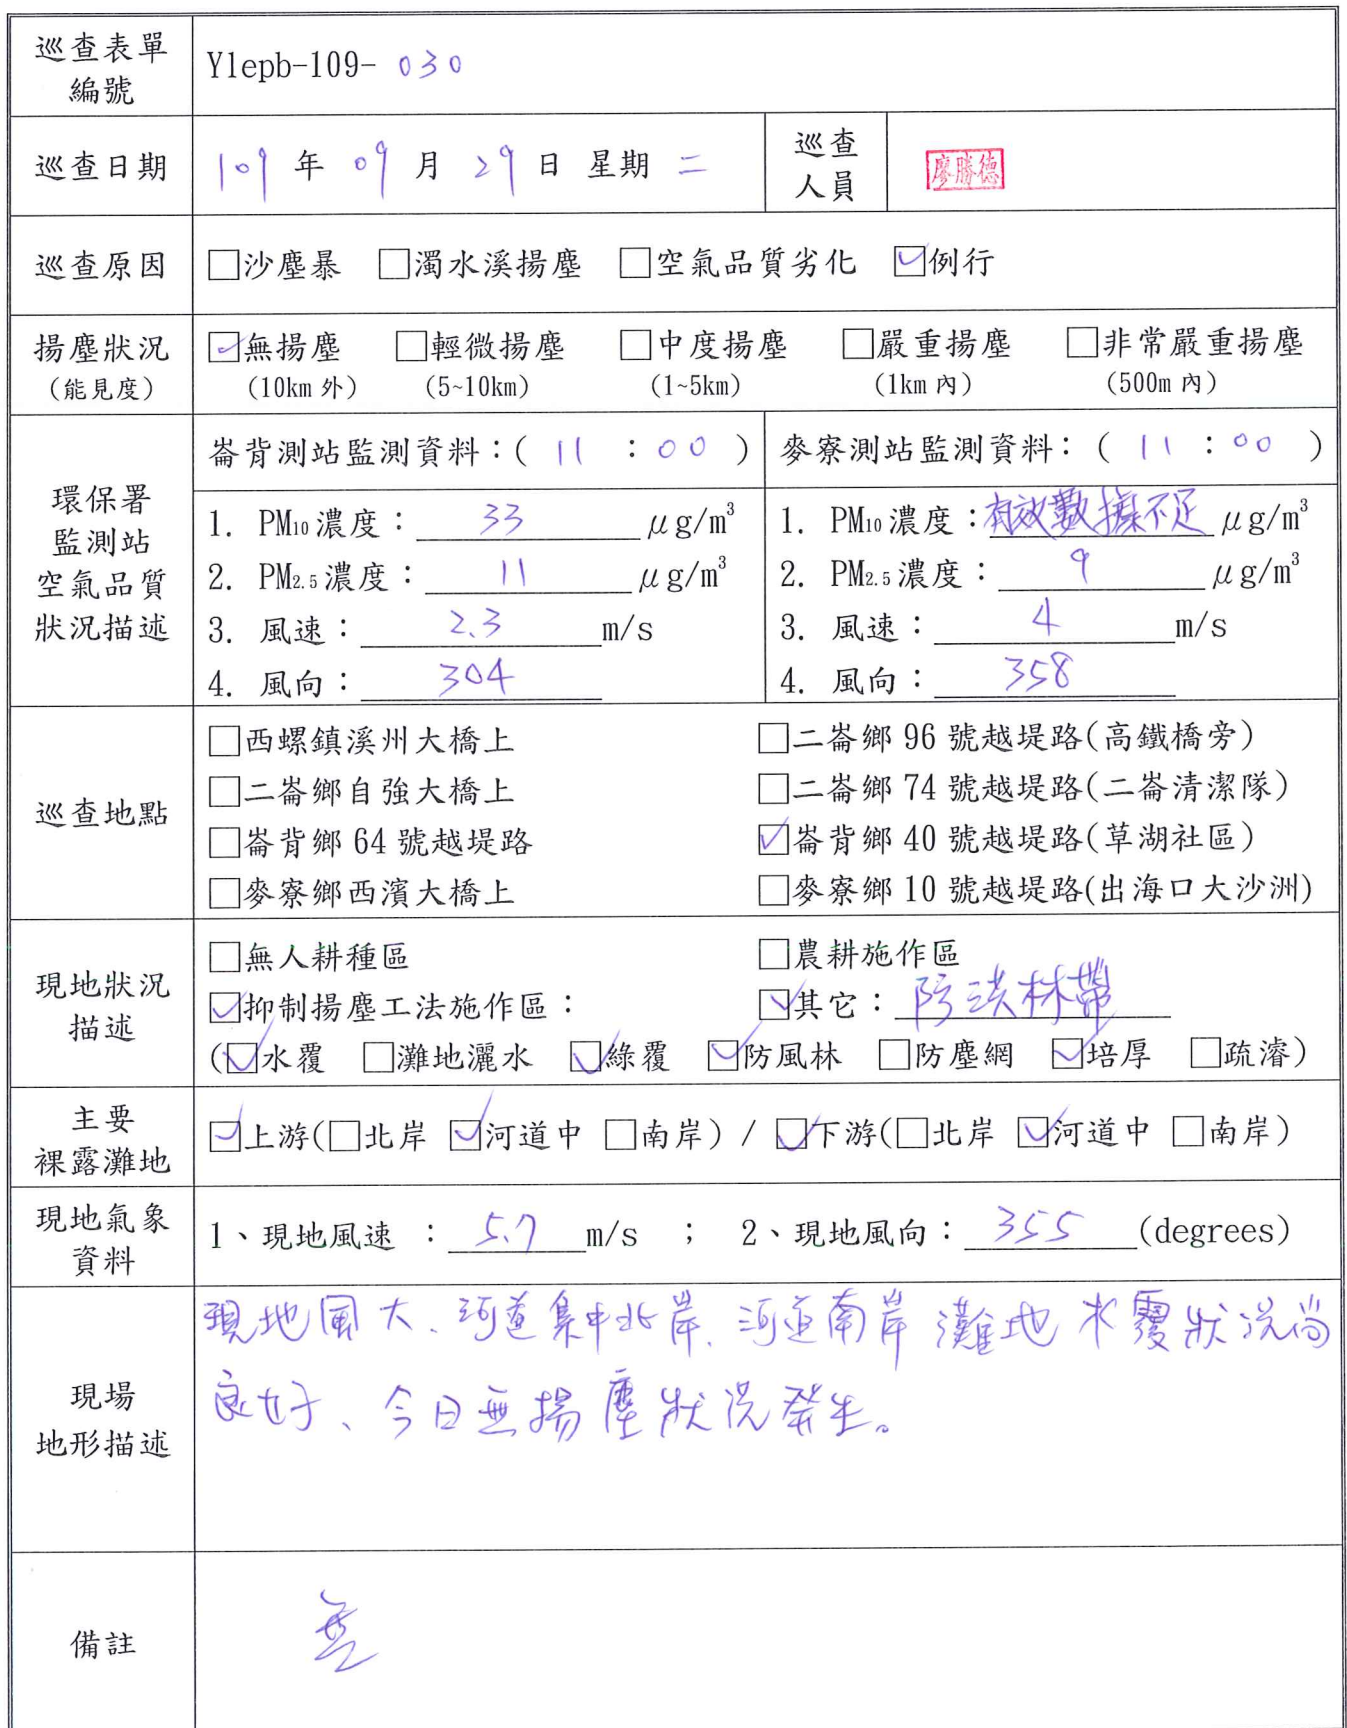 巡查表單
編號
Ylepb-109- 030
巡查日期
109 年 09 月 29 日 星期 二
巡查
人員
廖勝德
巡查原因
□沙塵暴 □濁水溪揚塵 □空氣品質劣化 ☑例行
揚塵狀況
(能見度)
☑無揚塵 □輕微揚塵 □中度揚塵 □嚴重揚塵 □非常嚴重揚塵
(10km 外) (5~10km) (1~5km) (1km 內) (500m 內)
環保署
監測站
空氣品質
狀況描述
崙背測站監測資料：( 11 : 00 )
1. PM10 濃度：33 μg/m³
2. PM2.5 濃度：11 μg/m³
3. 風速：2.3 m/s
4. 風向：304
麥寮測站監測資料：( 11 : 00 )
1. PM10 濃度：有效數據不足 μg/m³
2. PM2.5 濃度：9 μg/m³
3. 風速：4 m/s
4. 風向：358
巡查地點
□西螺鎮溪州大橋上 □二崙鄉 96 號越堤路(高鐵橋旁)
□二崙鄉自強大橋上 □二崙鄉 74 號越堤路(二崙清潔隊)
□崙背鄉 64 號越堤路 ☑崙背鄉 40 號越堤路(草湖社區)
□麥寮鄉西濱大橋上 □麥寮鄉 10 號越堤路(出海口大沙洲)
現地狀況
描述
□無人耕種區 □農耕施作區
☑抑制揚塵工法施作區： ☑其它：防洪林帶
(☑水覆 □灘地灑水 ☑綠覆 ☑防風林 □防塵網 ☑培厚 □疏濬)
主要
裸露灘地
☑上游(□北岸 ☑河道中 □南岸) / ☑下游(□北岸 ☑河道中 □南岸)
現地氣象
資料
1、現地風速 ：5.7 m/s ； 2、現地風向：355 (degrees)
現場
地形描述
現地風大、河道集中北岸、河道南岸灘地水覆狀況尚
良好、今日無揚塵狀況發生。
備註
無